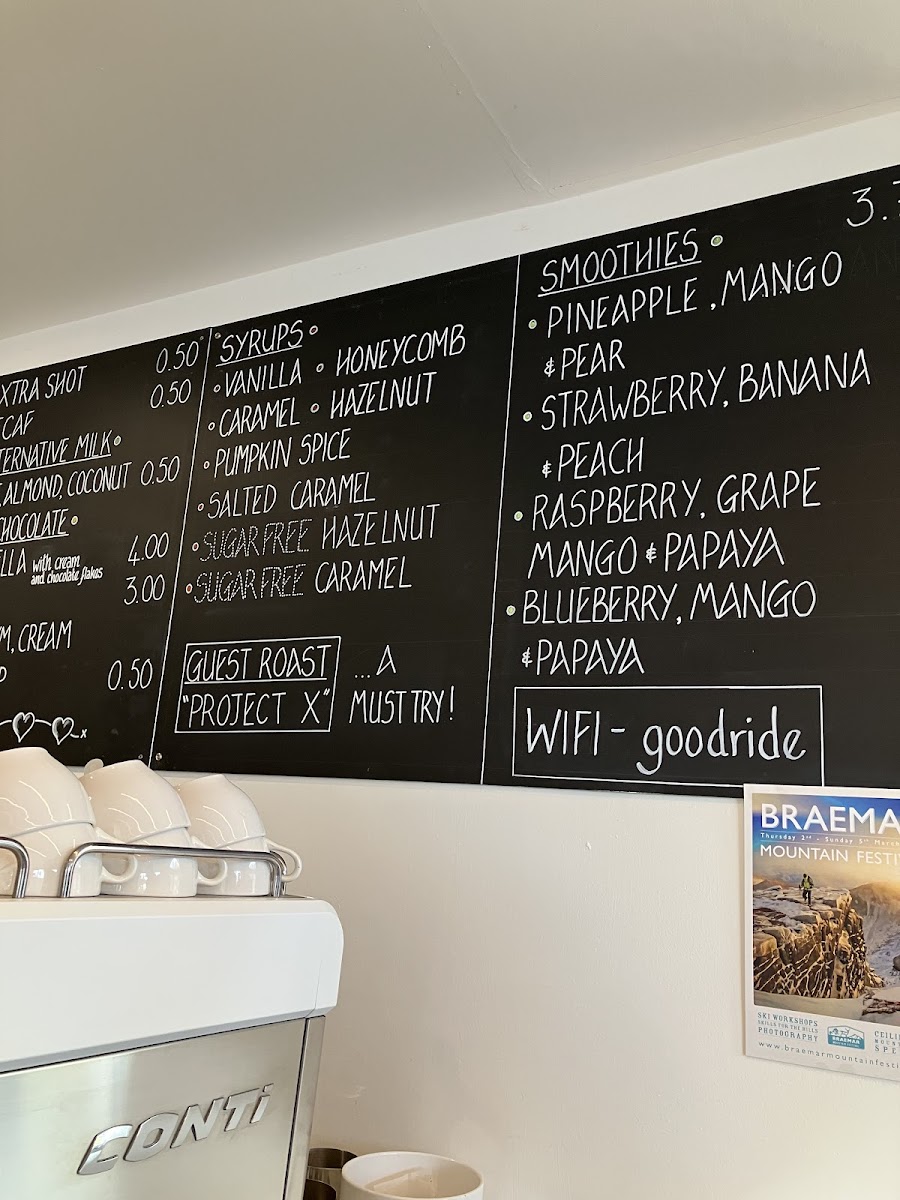 XTRA SHOT 0.50
CAF 0.50
TERNATIVE MILK
ALMOND, COCONUT 0.50
CHOCOLATE
ELLA with cream 4.00
and chocolate flakes
3.00
M, CREAM
0.50
x
"SYRUPS
VANILLA HONEYCOMB
CARAMEL HAZELNUT
PUMPKIN SPICE
SALTED CARAMEL
SUGARFREE HAZELNUT
SUGARFREE CARAMEL
GUEST ROAST ...A
"PROJECT X" MUST TRY!
3.7
SMOOTHIES
PINEAPPLE, MANGO
& PEAR
STRAWBERRY, BANANA
& PEACH
RASPBERRY, GRAPE
MANGO & PAPAYA
BLUEBERRY, MANGO
& PAPAYA
WIFI - goodride
BRAEMA
Thursday 2nd - Sunday 5th March
MOUNTAIN FESTI
SKI WORKSHOPS
SKILLS FOR THE HILLS
PHOTOGRAPHY
BRAEMAR
CEILI
MOUN
SPE
www.braemarmountainfesti
CONTi